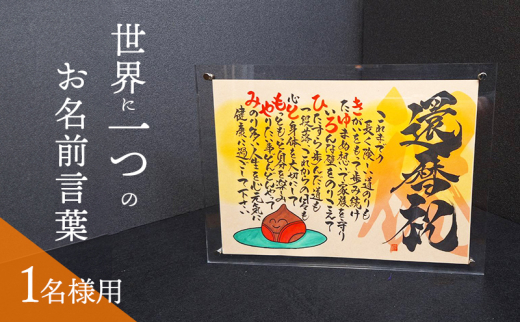 世界に一つの
お名前言葉
1名様用
還暦祝
これまでの
長く険しい道のりも
きがいをもって歩み続け
たゆまぬ想いで家族を守り
いろんな壁をのりこえて
ひたすら歩んだ道も
一段落。これからの日々も
心と身体を大切にして
もっともっと自分を高め
やりたい事をどんどんやって
みのり多い人生を心元気に
健康に過ごして下さい